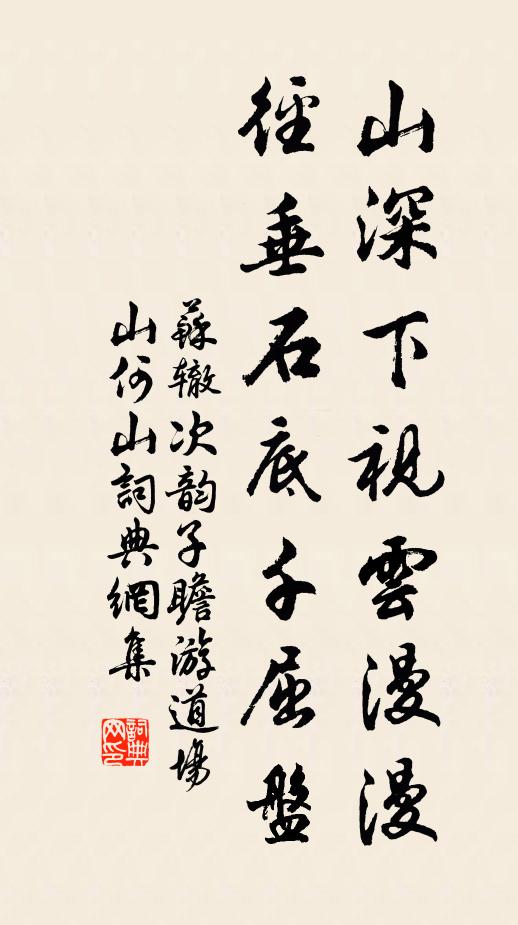 山深下視雲漫漫
徑垂石底千屈盤
蘇辙次韵子瞻游道場
山何山詞典網集
詞典
网印